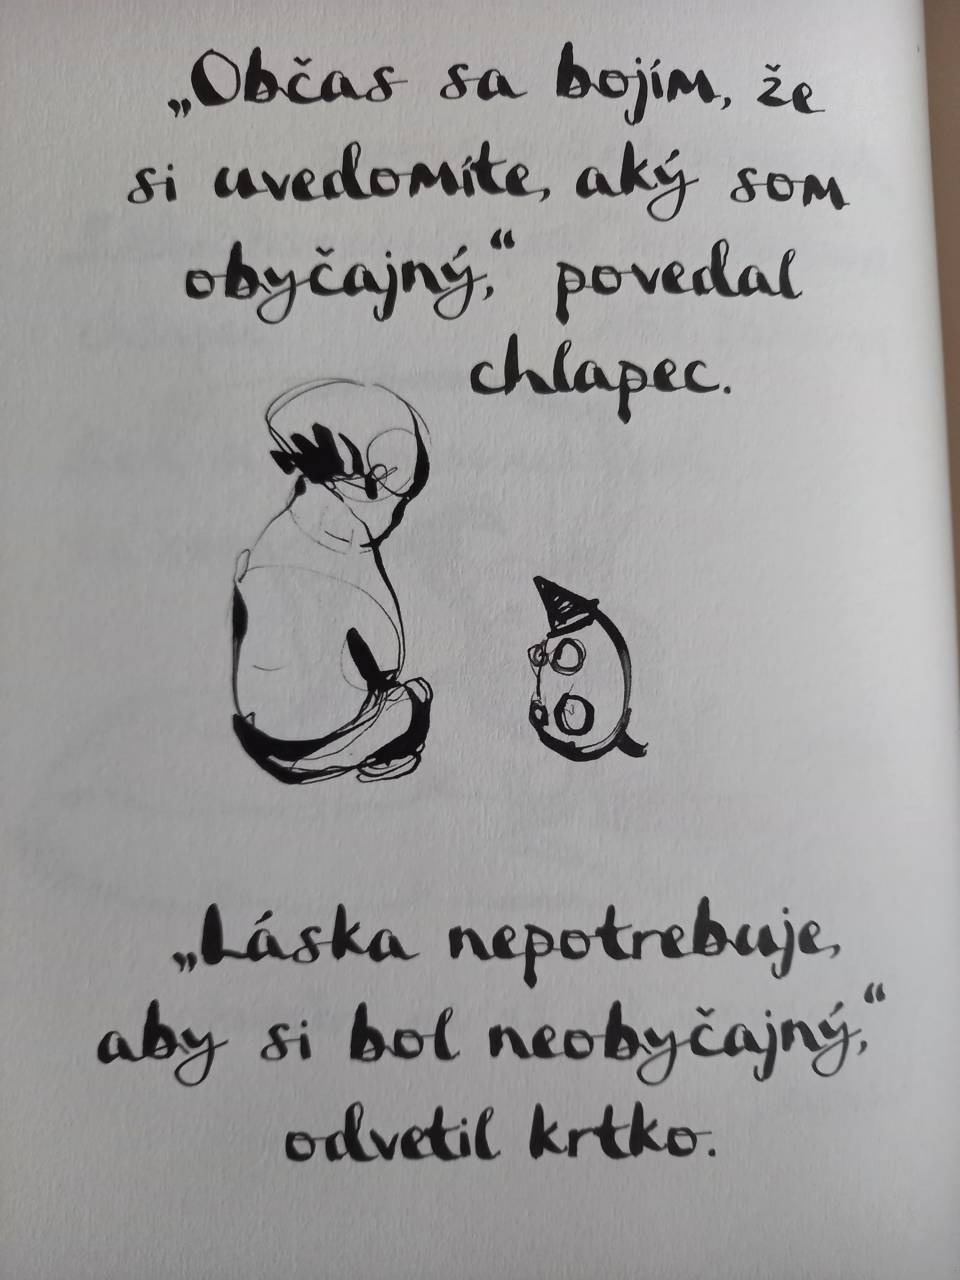 „Občas sa bojím, že
si uvedomíte, aký som
obyčajný,“ povedal
chlapec.
„Láska nepotrebuje,
aby si bol neobyčajný,“
odvetil krtko.